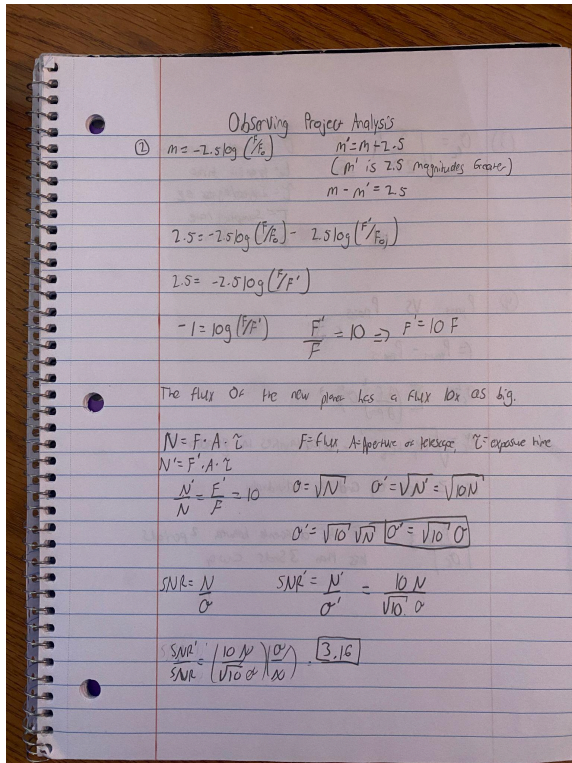 Observing Project Analysis
② m = -2.5 log (F/F₀) m' = m + 2.5
(m' is 2.5 magnitudes Greater)
m - m' = 2.5
2.5 = -2.5 log (F/F₀) - 2.5 log (F'/F₀)
2.5 = -2.5 log (F/F')
-1 = log (F/F') F'/F = 10 => F' = 10 F
The flux of the new planet has a flux 10x as big.
N = F · A · τ F = flux, A = Aperture of telescope, τ = exposure time
N' = F' · A · τ
N'/N = F'/F = 10 σ = √N σ' = √N' = √10N
σ' = √10 √N σ' = √10 σ
SNR = N/σ SNR' = N'/σ' = 10 N/√10 σ
SNR'/SNR = (10 N/√10 σ)(σ/N) = 3.16